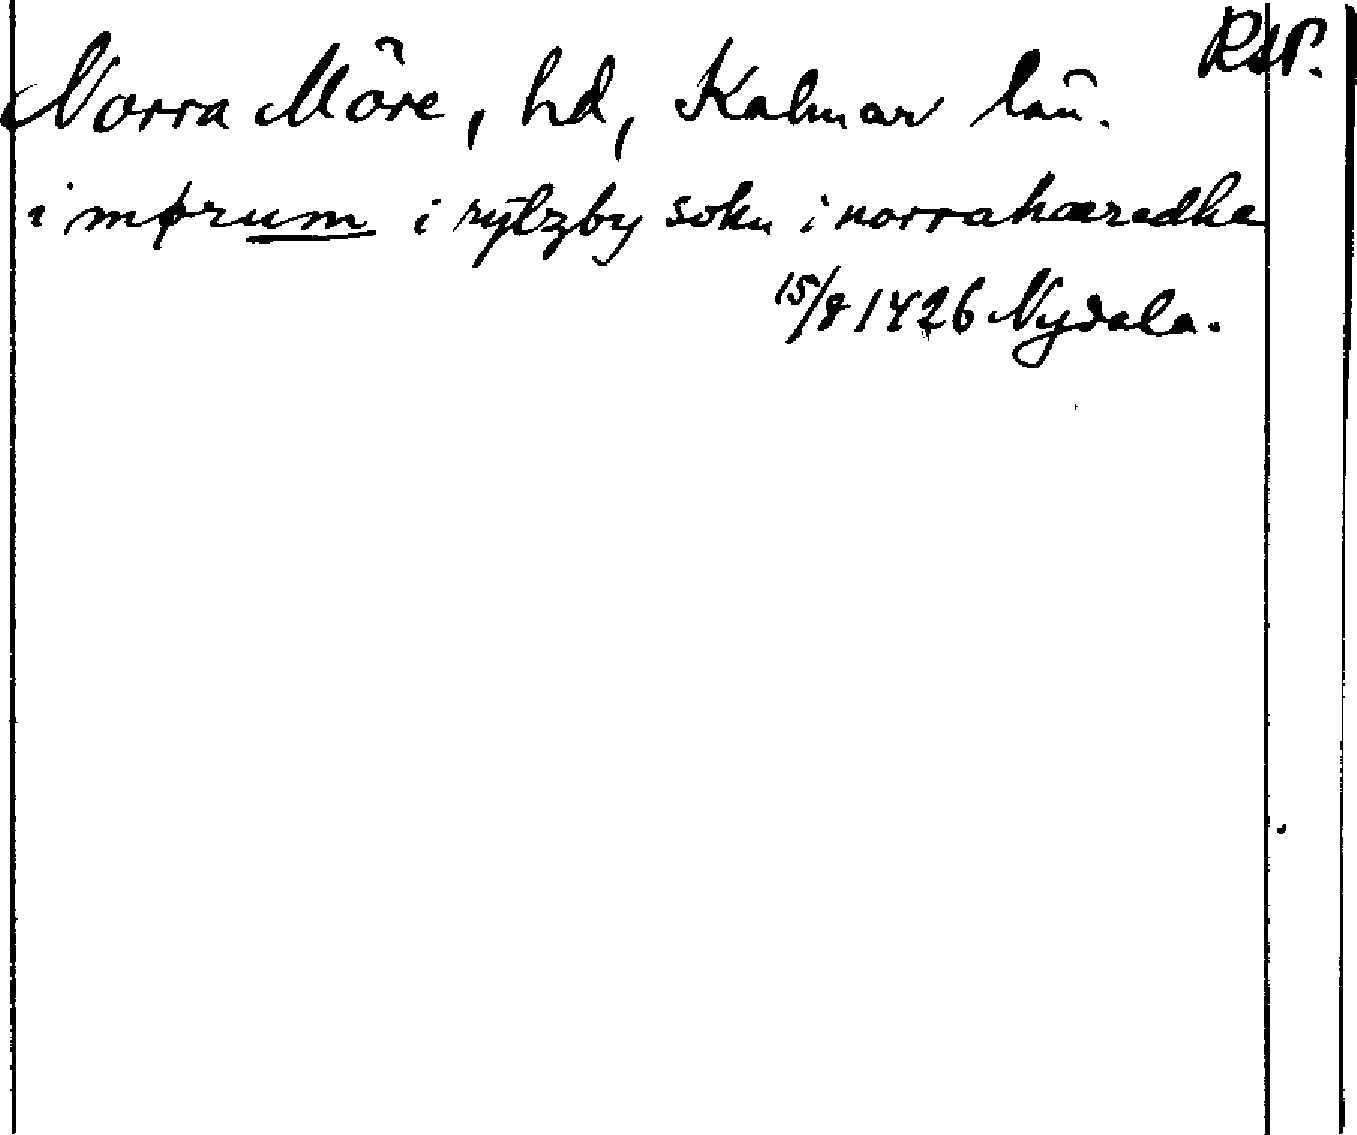 RAP.
Norra Möre, hd, Kalmar län.
i mørum i ryszby sokn i norrahæredhe
15/8 1426 Nydala.